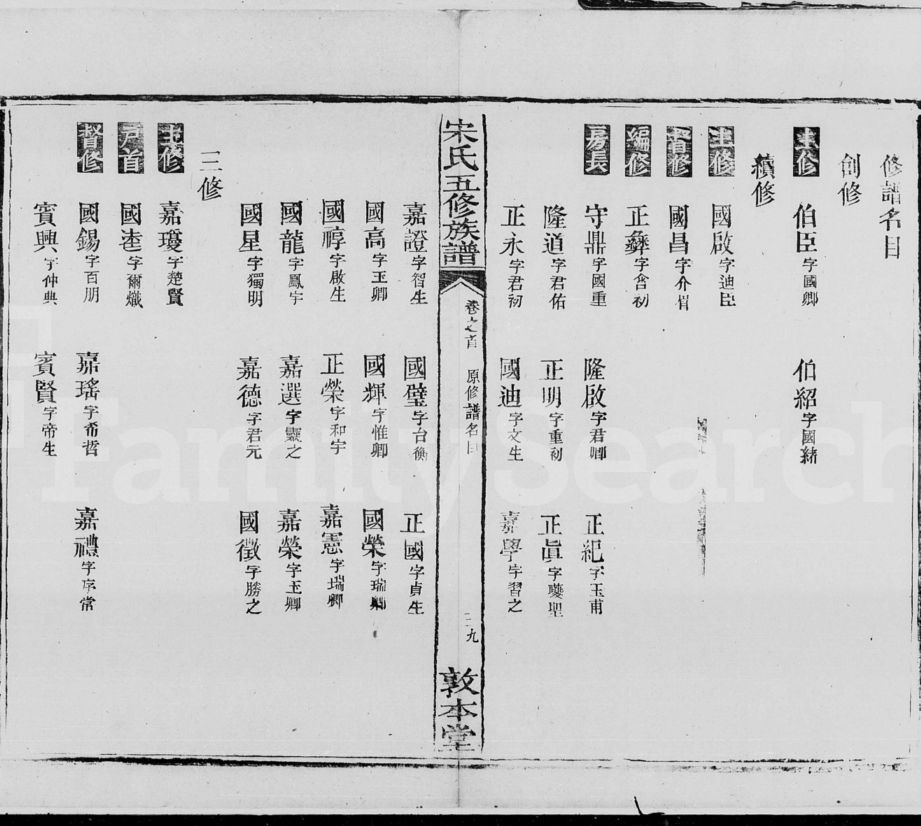 修譜名目
創修
主修 伯臣字國卿 伯紹字國緒
續修
主修 國啟字迪臣
督修 國昌字介眉
編修 正彝字含初
房長 守鼎字國重 隆啟字君卿 正紀字玉甫
隆道字君佑 正明字重初 正眞字夔聖
正永字君初 國迪字文生 嘉學字習之
宋氏五修族譜 卷之首 原修譜名目 九 敦本堂
嘉證字智生 國璧字台衡 正國字貞生
國高字玉卿 國輝字惟卿 國榮字瑞卿
國𥛱字啟生 正榮字和宇 嘉憲字瑞卿
國龍字鳳宇 嘉選字靈之 嘉榮字玉卿
國星字獨明 嘉德字君元 國徵字勝之
三修
主修 嘉瓊字楚賢
戸首 國字爾熾
督修 國錫字百朋 嘉瑤字希哲 嘉禮字序常
賓興字仲典 賓賢字帝生
FamilySearch